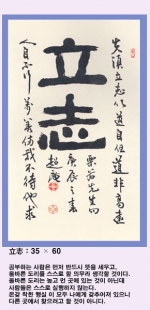 先須立志以道自任道非高遠
立志
栗谷先生
庚辰之春
人自不行萬善備我不待他求
立志 : 35 × 60
공부하는 사람은 먼저 반드시 뜻을 세우고,
올바른 도리를 스스로 할 의무라 생각할 것이다.
올바른 도리는 높고 먼 곳에 있는 것이 아닌데
사람들은 스스로 실행하지 않는다.
온갖 착한 행실 이 모두 나에게 갖추어져 있으니
다른 곳에서 찾으려고 할 것이 아니다.